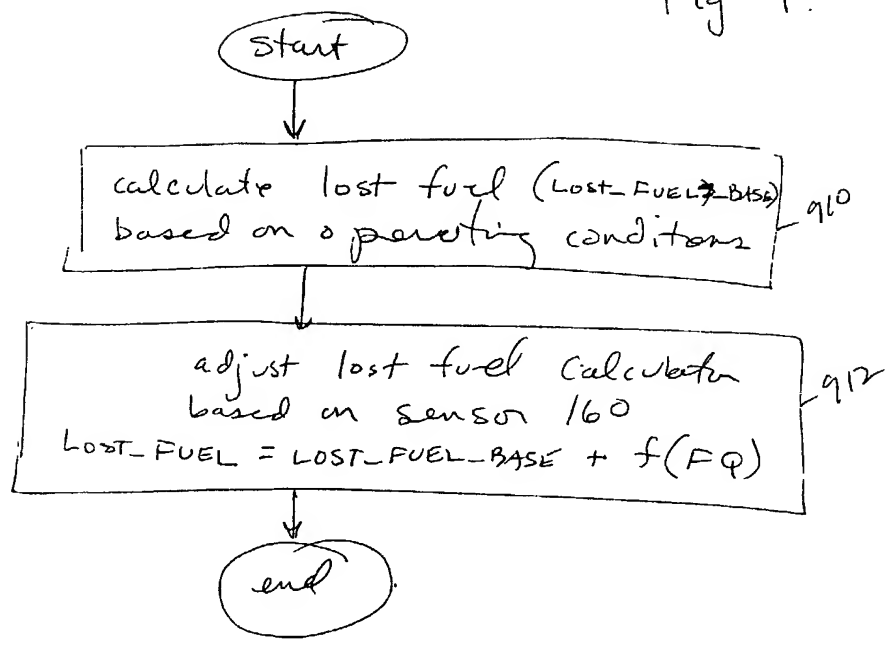 Fig 9.
start
calculate lost fuel (LOST_FUEL_BASE)
based on operating conditions
910
adjust lost fuel Calculation
based on sensor 160
LOST_FUEL = LOST_FUEL_BASE + f(FQ)
912
end